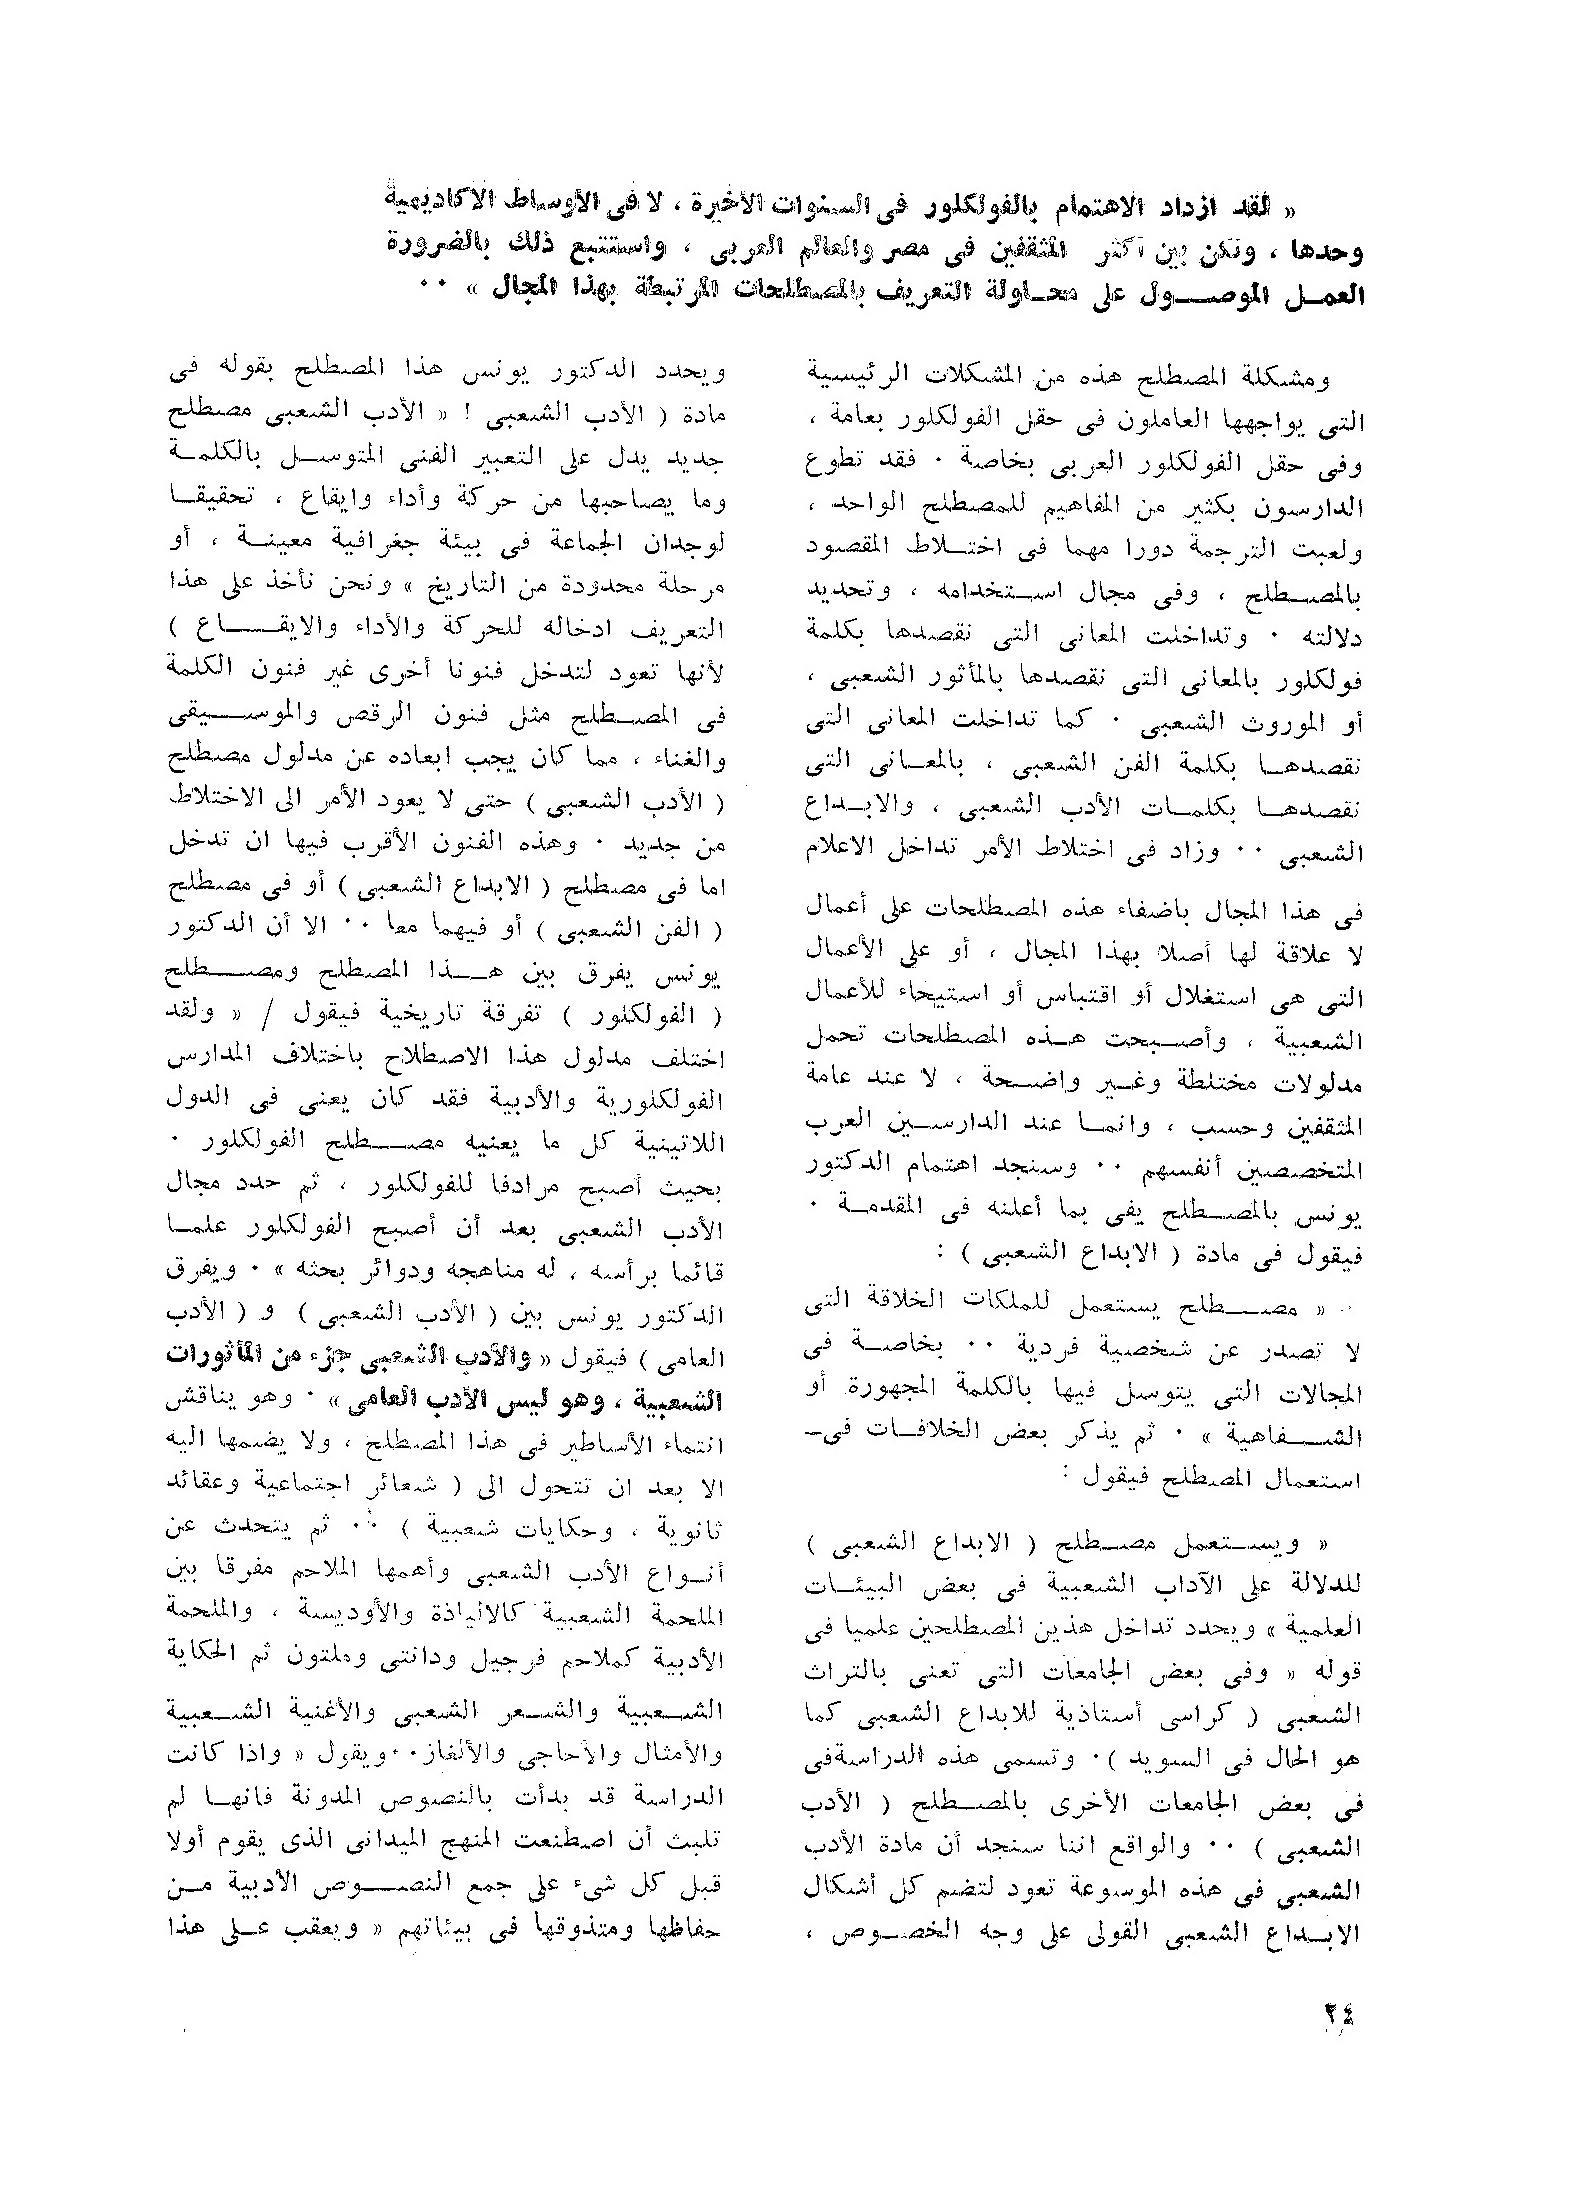 « لقد ازداد الاهتمام بالفولكلور فى السنوات الأخيرة ، لا فى الأوساط الاكاديمية
وحدها ، ولكن بين أكثر المثقفين فى مصر والعالم العربى ، واستتبع ذلك بالضرورة
العمل الموصول على محاولة التعريف بالمصطلحات المرتبطة بهذا المجال » ٠٠
ومشكلة المصطلح هذه من المشكلات الرئيسية
التى يواجهها العاملون فى حقل الفولكلور بعامة ،
وفى حقل الفولكلور العربى بخاصة ٠ فقد تطوع
الدارسون بكثير من المفاهيم للمصطلح الواحد ،
ولعبت الترجمة دورا مهما فى اختلاط المقصود
بالمصطلح ، وفى مجال استخدامه ، وتحديد
دلالته ٠ وتداخلت المعانى التى نقصدها بكلمة
فولكلور بالمعانى التى نقصدها بالمأثور الشعبى ،
أو الموروث الشعبى ٠ كما تداخلت المعانى التى
نقصدها بكلمة الفن الشعبى ، بالمعانى التى
نقصدها بكلمات الأدب الشعبى ، والابداع
الشعبى ٠٠ وزاد فى اختلاط الأمر تداخل الاعلام
فى هذا المجال باضفاء هذه المصطلحات على أعمال
لا علاقة لها أصلا بهذا المجال ، أو على الأعمال
التى هى استغلال أو اقتباس أو استيحاء للأعمال
الشعبية ، وأصبحت هذه المصطلحات تحمل
مدلولات مختلطة وغير واضحة ، لا عند عامة
المثقفين وحسب ، وانما عند الدارسين العرب
المتخصصين أنفسهم ٠٠ وسنجد اهتمام الدكتور
يونس بالمصطلح يفى بما أعلنه فى المقدمة ٠
فيقول فى مادة ( الابداع الشعبى ) :
« مصطلح يستعمل للملكات الخلاقة التى
لا تصدر عن شخصية فردية ٠٠ بخاصة فى
المجالات التى يتوسل فيها بالكلمة المجهورة أو
الشفاهية » ٠ ثم يذكر بعض الخلافات فى
استعمال المصطلح فيقول :
« ويستعمل مصطلح ( الابداع الشعبى )
للدلالة على الآداب الشعبية فى بعض البيئات
العلمية » ويحدد تداخل هذين المصطلحين علميا فى
قوله « وفى بعض الجامعات التى تعنى بالتراث
الشعبى ( كراسى أستاذية للابداع الشعبى كما
هو الحال فى السويد )٠ وتسمى هذه الدراسة فى
فى بعض الجامعات الأخرى بالمصطلح ( الأدب
الشعبى ) ٠٠ والواقع اننا سنجد أن مادة الأدب
الشعبى فى هذه الموسوعة تعود لتضم كل أشكال
الابداع الشعبى القولى على وجه الخصوص ،
ويحدد الدكتور يونس هذا المصطلح بقوله فى
مادة ( الأدب الشعبى ! « الأدب الشعبى مصطلح
جديد يدل على التعبير الفنى المتوسل بالكلمة
وما يصاحبها من حركة وأداء وايقاع ، تحقيقا
لوجدان الجماعة فى بيئة جغرافية معينة ، أو
مرحلة محدودة من التاريخ » ونحن نأخذ على هذا
التعريف ادخاله للحركة والأداء والايقاع )
لأنها تعود لتدخل فنونا أخرى غير فنون الكلمة
فى المصطلح مثل فنون الرقص والموسيقى
والغناء ، مما كان يجب ابعاده عن مدلول مصطلح
( الأدب الشعبى ) حتى لا يعود الأمر الى الاختلاط
من جديد ٠ وهذه الفنون الأقرب فيها ان تدخل
اما فى مصطلح ( الابداع الشعبى ) أو فى مصطلح
( الفن الشعبى ) أو فيهما معا ٠٠ الا أن الدكتور
يونس يفرق بين هذا المصطلح ومصطلح
( الفولكلور ) تفرقة تاريخية فيقول / « ولقد
اختلف مدلول هذا الاصطلاح باختلاف المدارس
الفولكلورية والأدبية فقد كان يعنى فى الدول
اللاتينية كل ما يعنيه مصطلح الفولكلور ٠
بحيث أصبح مرادفا للفولكلور ، ثم حدد مجال
الأدب الشعبى بعد أن أصبح الفولكلور علما
قائما برأسه ، له مناهجه ودوائر بحثه » ٠ ويفرق
الدكتور يونس بين ( الأدب الشعبى ) و ( الأدب
العامى ) فيقول « والأدب الشعبى جزء من المأثورات
الشعبية ، وهو ليس الأدب العامى » ٠ وهو يناقش
انتماء الأساطير فى هذا المصطلح ، ولا يضمها اليه
الا بعد ان تتحول الى ( شعائر اجتماعية وعقائد
ثانوية ، وحكايات شعبية ) ٠٠ ثم يتحدث عن
أنواع الأدب الشعبى وأهمها الملاحم مفرقا بين
الملحمة الشعبية كالالياذة والأوديسة ، والملحمة
الأدبية كملاحم فرجيل ودانتى وملتون ثم الحكاية
الشعبية والشعر الشعبى والأغنية الشعبية
والأمثال والأحاجى والألغاز٠٠ويقول « واذا كانت
الدراسة قد بدأت بالنصوص المدونة فانها لم
تلبث أن اصطنعت المنهج الميدانى الذى يقوم أولا
قبل كل شىء على جمع النصوص الأدبية من
حفاظها ومتذوقها فى بيئاتهم « ويعقب على هذا
٢٤